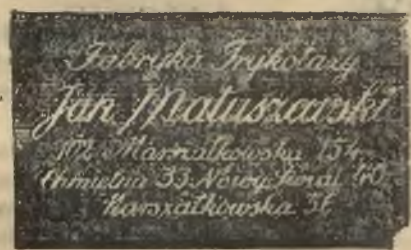 Fabryka Trykotaży
Jan Matuszewski
102 Marszałkowska 154
Chmielna 33 Nowy Świat 40
Marszałkowska